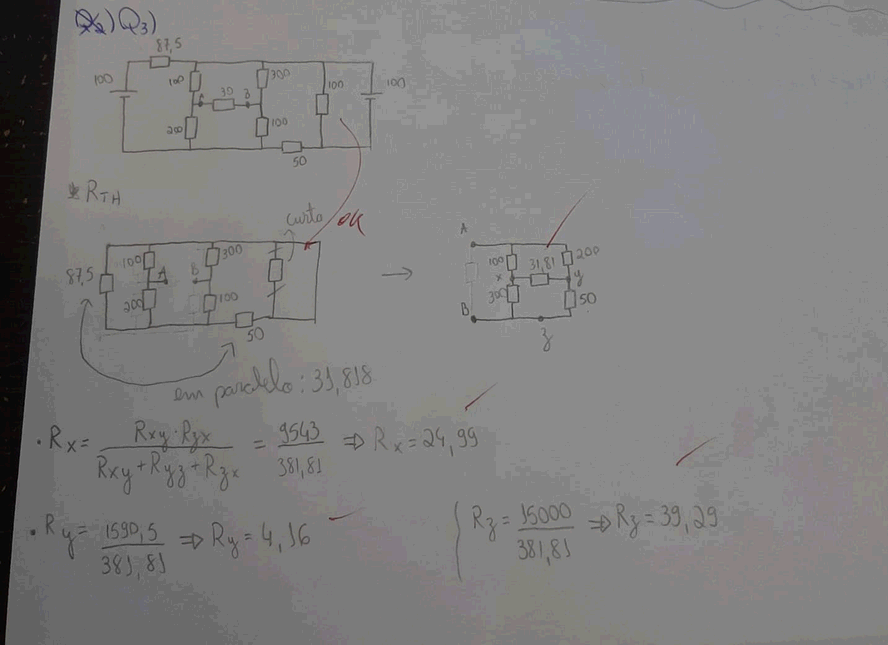 Q3)
87,5
100
100
30
300
100
100
A
B
200
100
50
* RTH
curto
OK
87,5
100
A
B
300
200
100
50
A
100
31,81
200
x
y
300
50
B
z
em paralelo: 31,818
• Rx = Rxy·Rzx / Rxy + Ryz + Rzx = 9543 / 381,81 ⇒ Rx = 24,99
• Ry = 1590,5 / 381,81 ⇒ Ry = 4,16
Rz = 15000 / 381,81 ⇒ Rz = 39,29